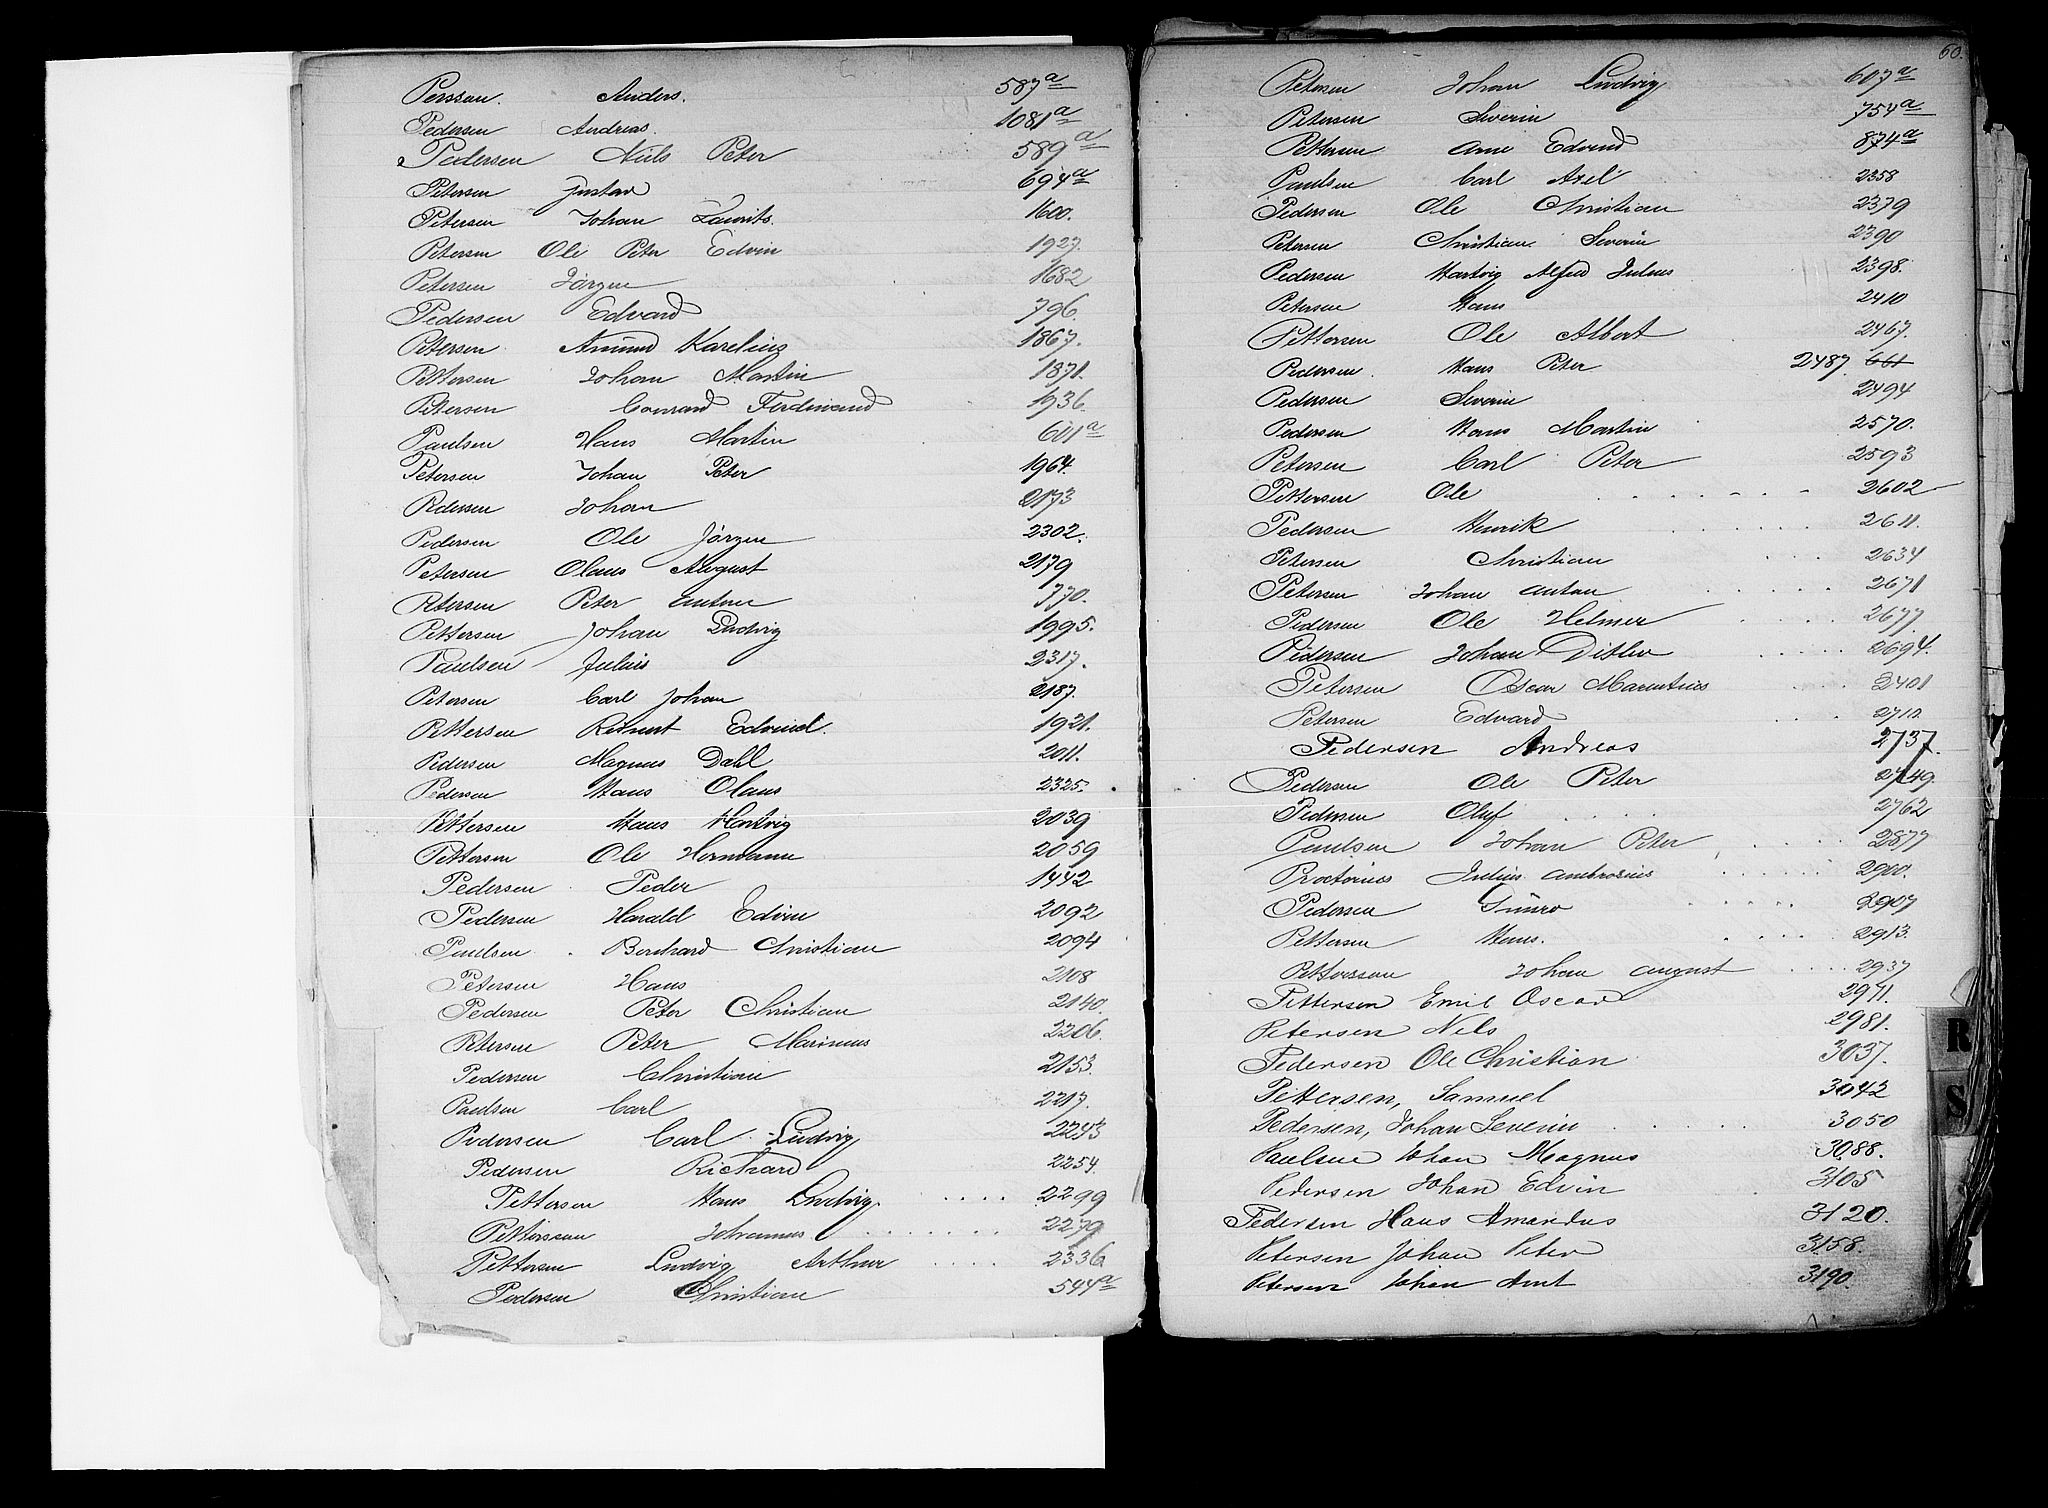 Persson. Anders. 587 a
Pedersen Andreas. 1081 a
Pedersen Niels Peter 589 a
Petersen Gustav 694 a
Petersen Johan Laurits. 1600.
Petersen Ole Peter Edvin 1927.
Petersen Jörgen 1682
Pedersen Edvard 796.
Petersen Amund Karelius 1867.
Pettersen Johan Martin 1871.
Petersen Conrad Ferdinand 1936.
Paulsen Hans Martin 601 a
Petersen Johan Peter 1964.
Pedersen Johan 2173
Pedersen Ole Jörgen 2302.
Petersen Olaus August 2179
Petersen Peter Anton 770.
Pettersen Johan Ludvig 1995.
Paulsen Julius 2317.
Petersen Carl Johan 2187.
Pettersen Edvind. 1921.
Pedersen Magnus Dahl 2011.
Pedersen Hans Olaus 2325.
Pettersen Hans Hartvig 2039
Pettersen Ole Hermann 2059
Pedersen Peder 1442
Pedersen Harald Edvin 2092
Paulsen Bernhard Christian 2094
Petersen Hans 2108
Pedersen Peter Christian 2140.
Petersen Peter Marinus 2206.
Pedersen Christian 2153.
Paulsen Carl 2217.
Pedersen Carl Ludvig 2243
Pedersen Richard 2254.
Pettersen Hans Ludvig. 2299
Petterssen Johannes 2279
Pettersen Ludvig Arthur 2336
Pedersen Christian 544 a
60.
Petersen Johan Ludvig 607 a
Petersen Severin 754 a
Pettersen Arne Edvind 874 a
Paulsen Carl Axel 2358
Pedersen Ole Christian 2379
Petersen Christian Severin 2390
Pedersen Hartvig Alfred Julius 2398.
Petersen Hans 2410
Pettersen Ole Albert 2467.
Pedersen. Hans Peter 2487 661
Pedersen Severin 2494
Pedersen Hans Martin 2570.
Petersen Carl Peter 2593
Pettersen Ole 2602
Pedersen Henrik 2611.
Petersen Christian 2634
Petersen Johan Anton 2671
Pedersen Ole Helmer 2677
Pedersen Johan Ditlev 2694.
Petersen Oscar Marentius 2401
Petersen Edvard 2712.
Pedersen Andreas 2737.
Pedersen Ole Peter 2749.
Pedersen Oluf 2762
Paulsen Johan Peter 2877
Proctorius Julius Ambrosius 2900.
Pedersen Gunro 2907
Pettersen Hans. 2913.
Petterssen Johan August 2937
Pettersen Emil Oscar 2971.
Petersen Nels 2981.
Pedersen Ole Christian 3037.
Pettersen, Samuel 3042
Pedersen, Johan Severin 3050
Paulsen Johan Magnus 3088.
Pedersen Johan Edvin 3105
Pedersen Hans Amandus 3120.
Petersen Johan Peter 3158.
Petersen Johan Arnt 3190.
R
S